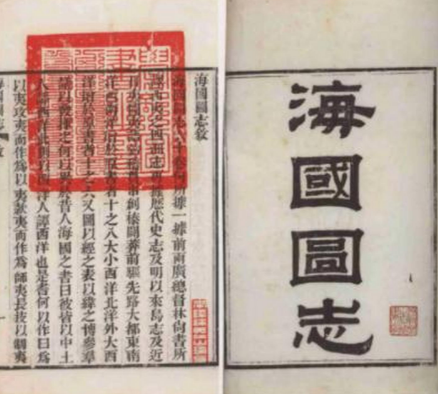 海國圖志
海國圖志敘
海國圖志六十卷何所據一據前兩廣總督林尚書所
譯西夷之四洲志再據歷代史志及明以來島志及近
日夷圖夷語鉤稽貫串創榛闢莽前驅先路大都東南
洋西南洋增於原書者十之八大小西洋北洋外大西
洋增於原書者十之六又圖以經之表以緯之博參羣
議以發揮之何以異於昔人海圖之書曰彼皆以中土
人譚西洋此則以西洋人譚西洋也是書何以作曰爲
以夷攻夷而作爲以夷款夷而作爲師夷長技以制夷
海國圖志 敘